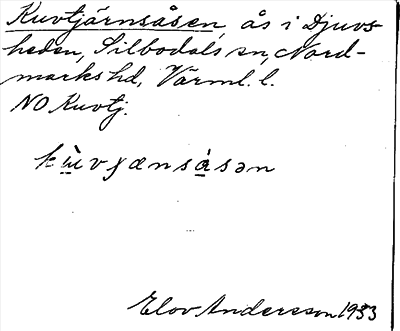 Kuvtjärnsåsen, ås i Djuvs-
heden, Silbodals sn, Nord-
marks hd, Värml. l.
NO Kuvtj.
kùvjænsåsən
Elov Andersson 1933